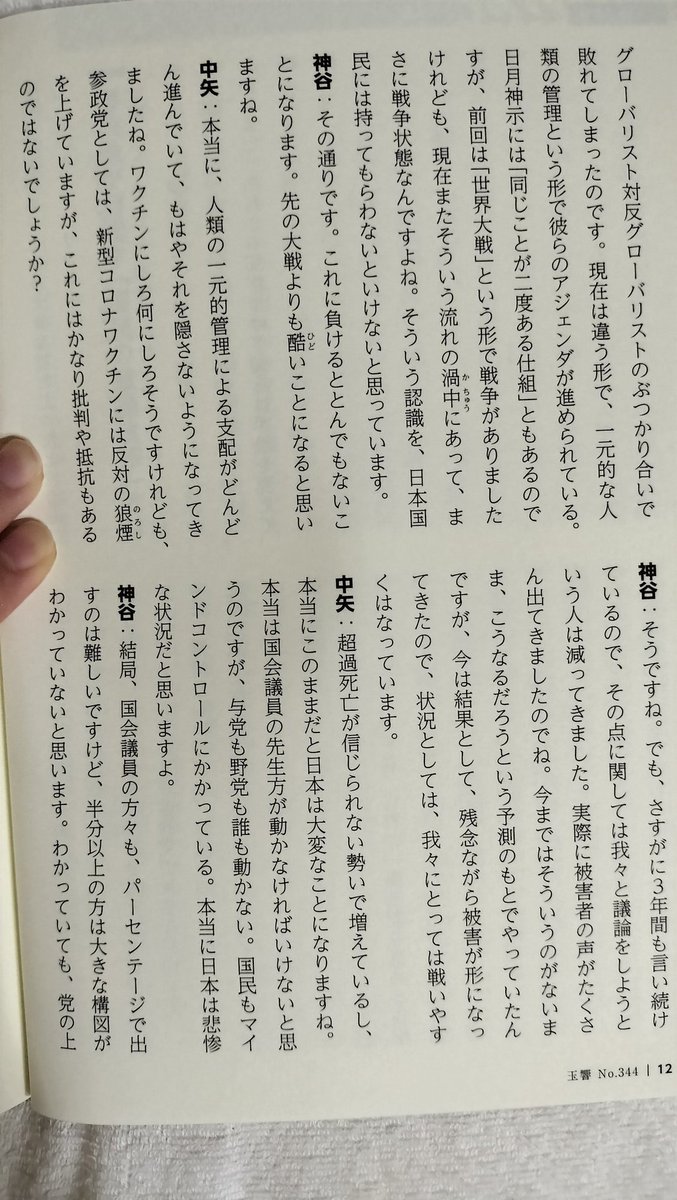 グローバリスト対反グローバリストのぶつかり合いで
敗れてしまったのです。現在は違う形で、一元的な人
類の管理という形で彼らのアジェンダが進められている。
日月神示には「同じことが二度ある仕組」ともあるので
すが、前回は「世界大戦」という形で戦争がありました
けれども、現在またそういう流れの渦中にあって、ま
さに戦争状態なんですよね。そういう認識を、日本国
民には持ってもらわないといけないと思っています。
神谷：その通りです。これに負けるととんでもないこ
とになります。先の大戦よりも酷いことになると思い
ますね。
中矢：本当に、人類の一元的管理による支配がどんど
ん進んでいて、もはやそれを隠さないようになってき
ましたね。ワクチンにしろ何にしろそうですけれども、
参政党としては、新型コロナワクチンには反対の狼煙
を上げていますが、これにはかなり批判や抵抗もある
のではないでしょうか？
神谷：そうですね。でも、さすがに３年間も言い続け
ているので、その点に関しては我々と議論をしようと
いう人は減ってきました。実際に被害者の声がたくさ
ん出てきましたのでね。今まではそういうのがないま
ま、こうなるだろうという予測のもとでやっていたん
ですが、今は結果として、残念ながら被害が形になっ
てきたので、状況としては、我々にとっては戦いやす
くはなっています。
中矢：超過死亡が信じられない勢いで増えているし、
本当にこのままだと日本は大変なことになりますね。
本当は国会議員の先生方が動かなければいけないと思
うのですが、与党も野党も誰も動かない。国民もマイ
ンドコントロールにかかっている。本当に日本は悲惨
な状況だと思いますよ。
神谷：結局、国会議員の方々も、パーセンテージで出
すのは難しいですけど、半分以上の方は大きな構図が
わかっていないと思います。わかっていても、党の上
玉響 No.344 | 12